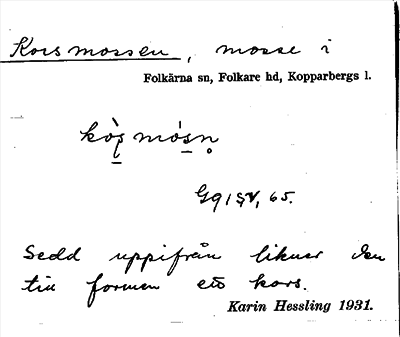 Korsmossen, mosse i
Folkärna sn, Folkare hd, Kopparbergs l.
mósn̥
65.
Sedd uppifrån liknar den
till formen ett kors.
Karin Hessling 1931.